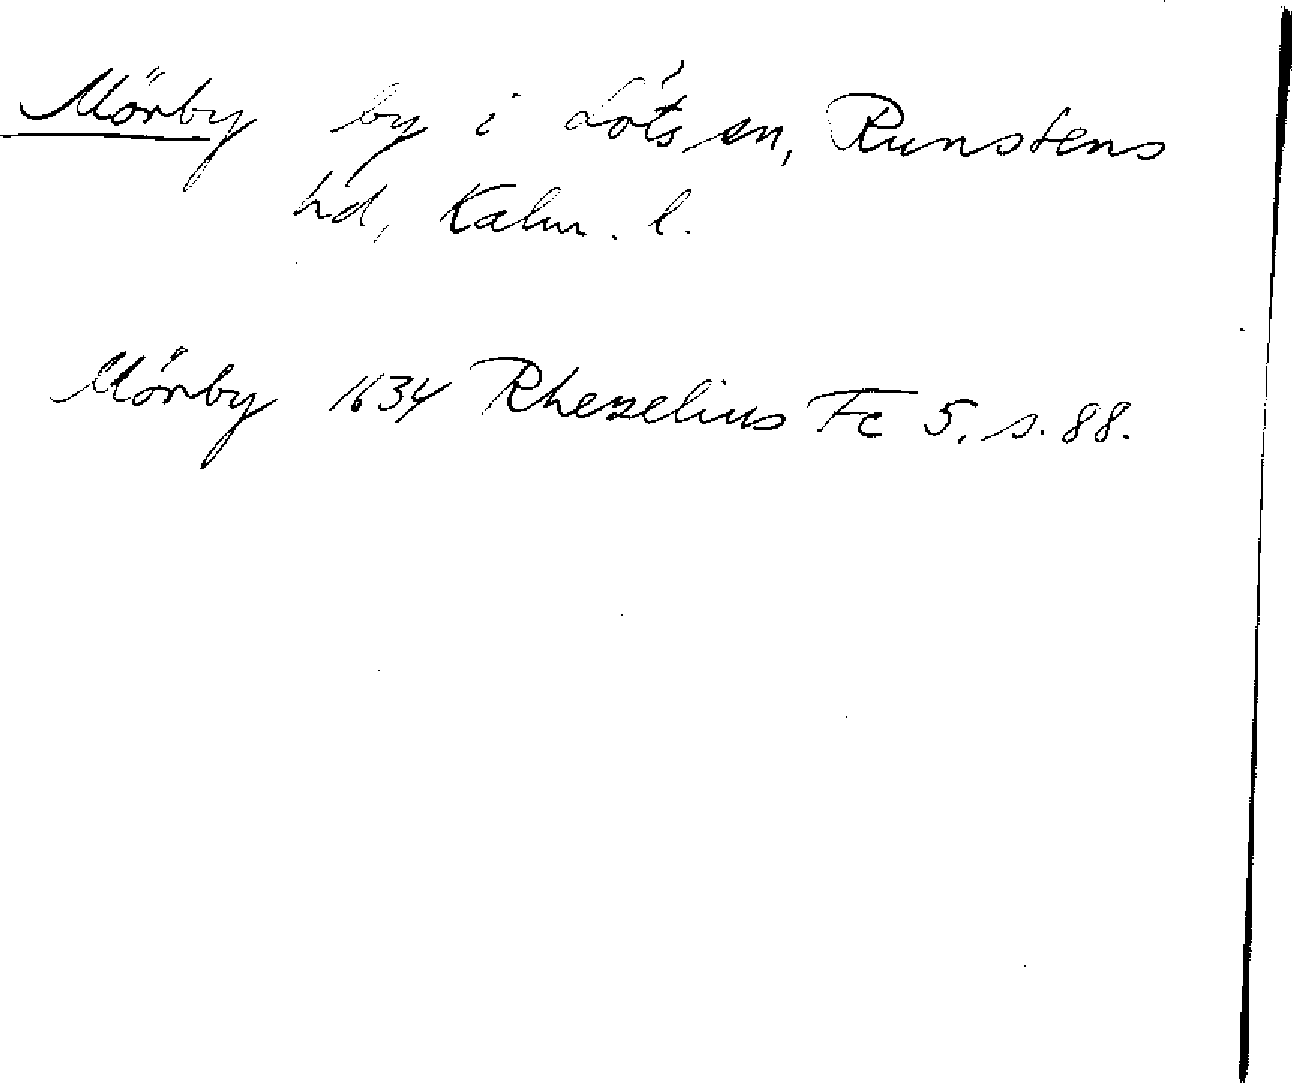 Mörby by i Löts sn, Runstens
hd, Kalm. l.
Mörby 1634 Rhezelius Fc 5, s. 88.